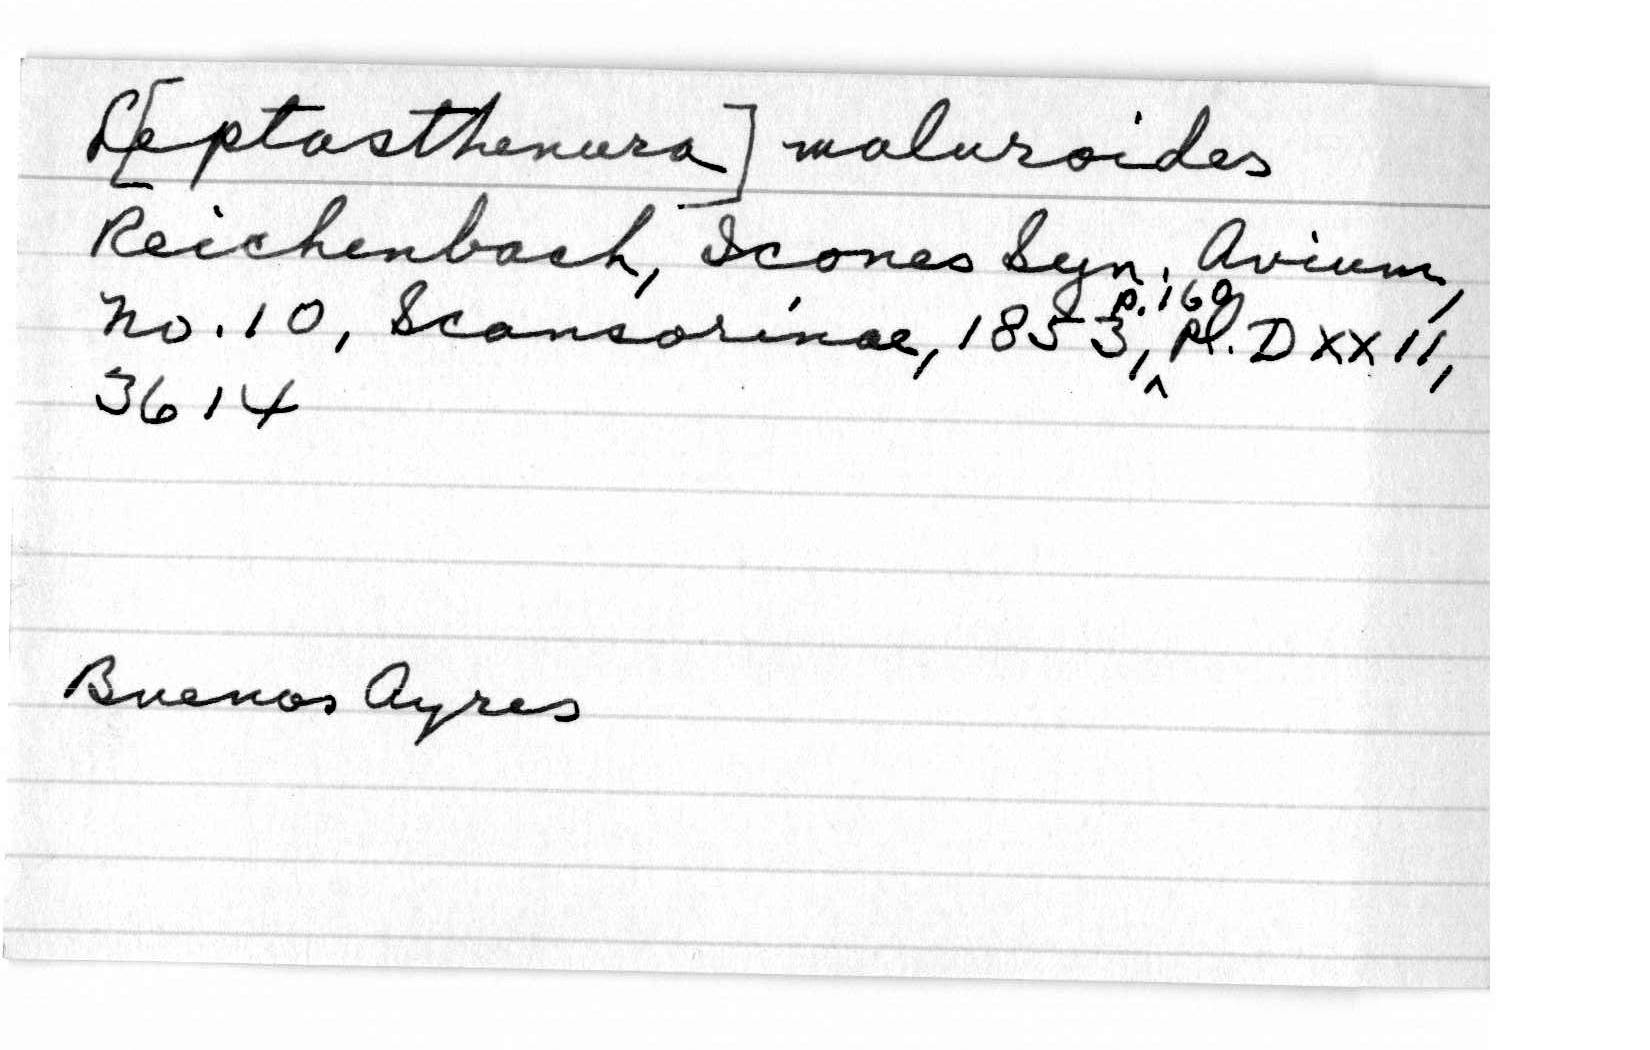 L[eptasthenura] maluroides
Reichenbach, Icones Syn. Avium,
No. 10, Scansorinae, 1853, p. 160, pl. DXXII,
3614
Buenos Ayres